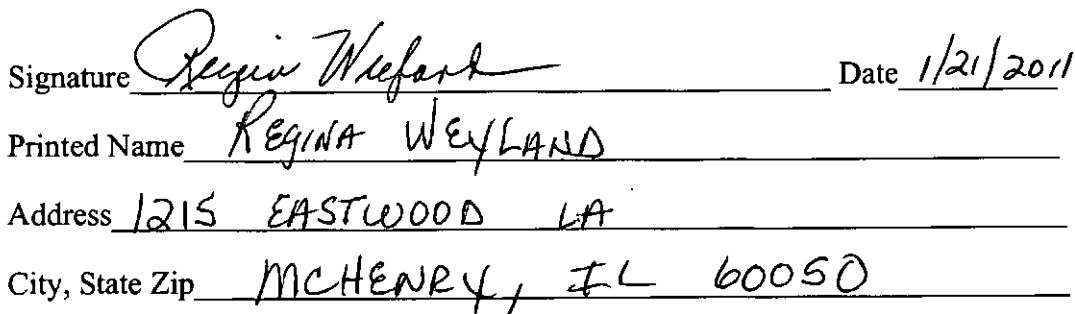 Signature Regina Weyland Date 1/21/2011
Printed Name REGINA WEYLAND
Address 1215 EASTWOOD LA
City, State Zip MCHENRY, IL 60050